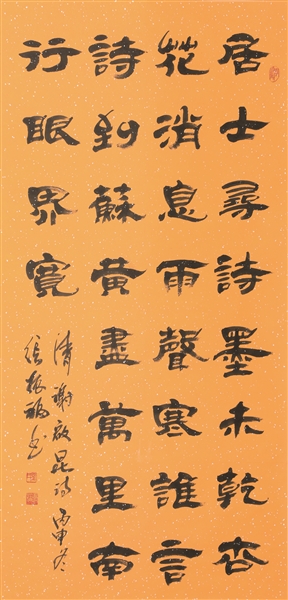 居士尋詩墨未乾杏
花消息雨聲寒誰言
詩到蘇黄盡萬里南
行眼界寬
清謝啟昆詩丙申冬
張振福书